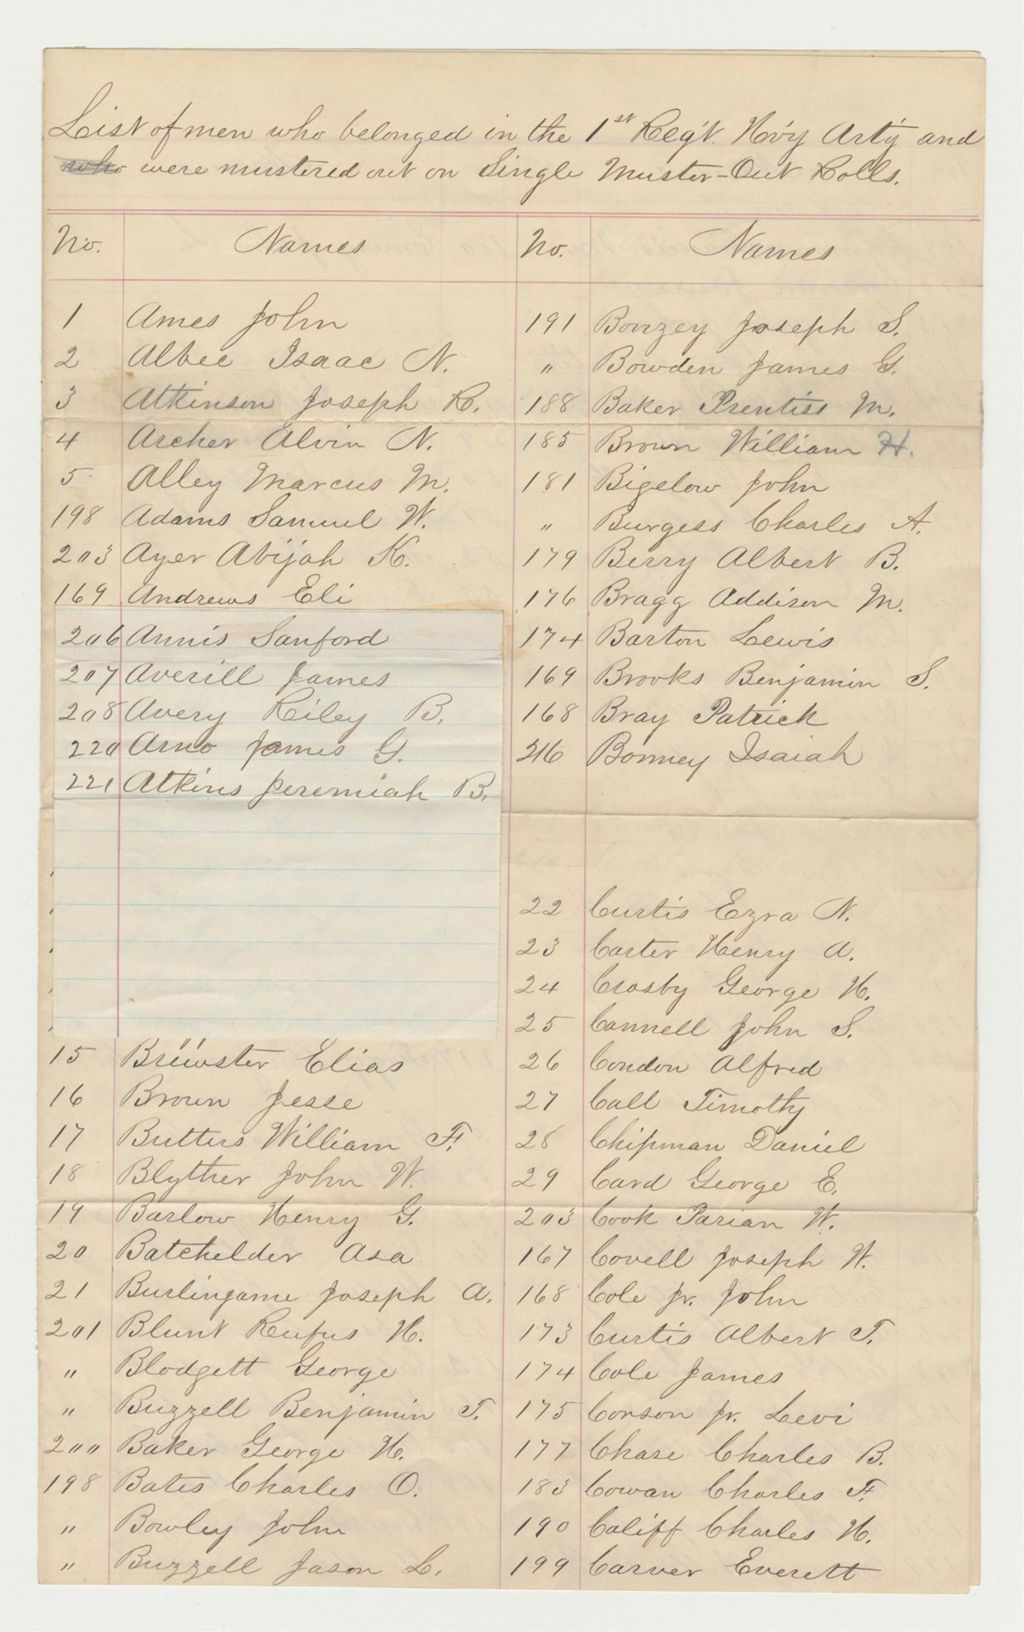 List of men who belonged in the 1st Reg't. H'vy Art'y and
who were mustered out on Single Muster-Out Rolls.
No. Names
1 Ames John
2 Albee Isaac N.
3 Atkinson Joseph R.
4 Archer Alvin N.
5 Alley Marcus M.
198 Adams Samuel W.
203 Ayer Abijah K.
169 Andrews Eli
206 Annis Sanford
207 Averill James
208 Avery Riley B.
220 Arno James G.
221 Atkins Jeremiah B.
15 Brewster Elias
16 Brown Jesse
17 Butters William F.
18 Blyther John W.
19 Barlow Henry G.
20 Batchelder Asa
21 Burlingame Joseph A.
201 Blunt Rufus H.
" Blodgett George
" Buzzell Benjamin T.
200 Baker George H.
198 Bates Charles O.
" Bowley John
" Buzzell Jason L.
No. Names
191 Bonzey Joseph S.
" Bowden James G.
188 Baker Prentiss M.
185 Brown William H.
181 Bigelow John
" Burgess Charles A.
179 Berry Albert B.
176 Bragg Addison M.
174 Barton Lewis
169 Brooks Benjamin S.
168 Bray Patrick
216 Bonney Isaiah
22 Curtis Ezra N.
23 Carter Henry A.
24 Crosby George H.
25 Cannell John S.
26 Condon Alfred
27 Call Timothy
28 Chipman Daniel
29 Card George E.
203 Cook Parian W.
167 Covell Joseph W.
168 Cole Jr. John
173 Curtis Albert T.
174 Cole James
175 Corson Jr. Levi
177 Chase Charles B.
183 Cowan Charles F.
190 Califf Charles H.
199 Carver Everett